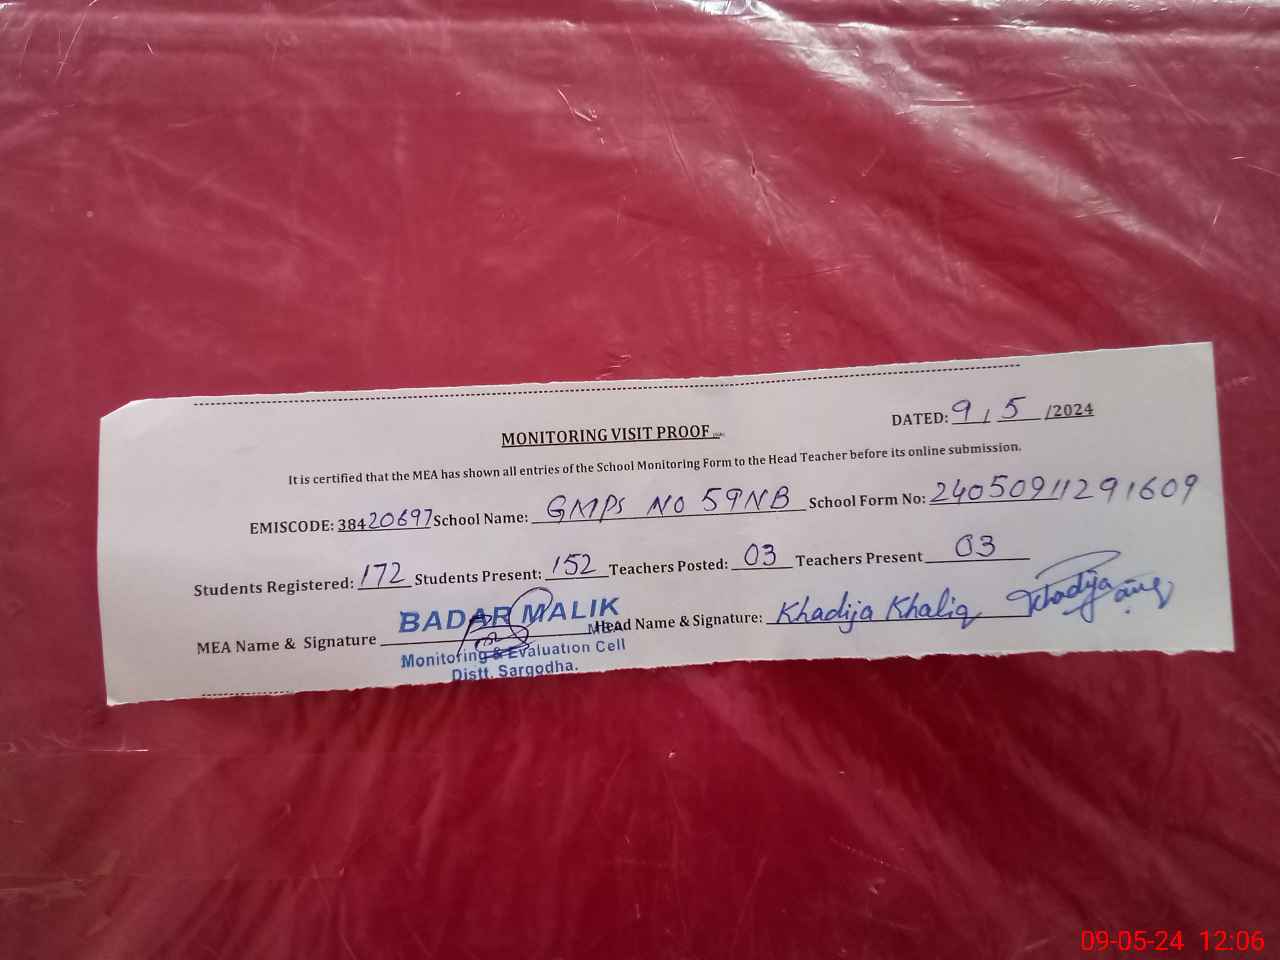 DATED: 9 / 5 /2024
MONITORING VISIT PROOF
It is certified that the MEA has shown all entries of the School Monitoring Form to the Head Teacher before its online submission.
EMISCODE: 38420697 School Name: GMPS NO 59NB School Form No: 24050911291609
Students Registered: 172 Students Present: 152 Teachers Posted: 03 Teachers Present 03
MEA Name & Signature BADAR MALIK Head Name & Signature: Khadija Khaliq Khadija
MEA
Monitoring & Evaluation Cell
Distt. Sargodha.
09-05-24 12:06